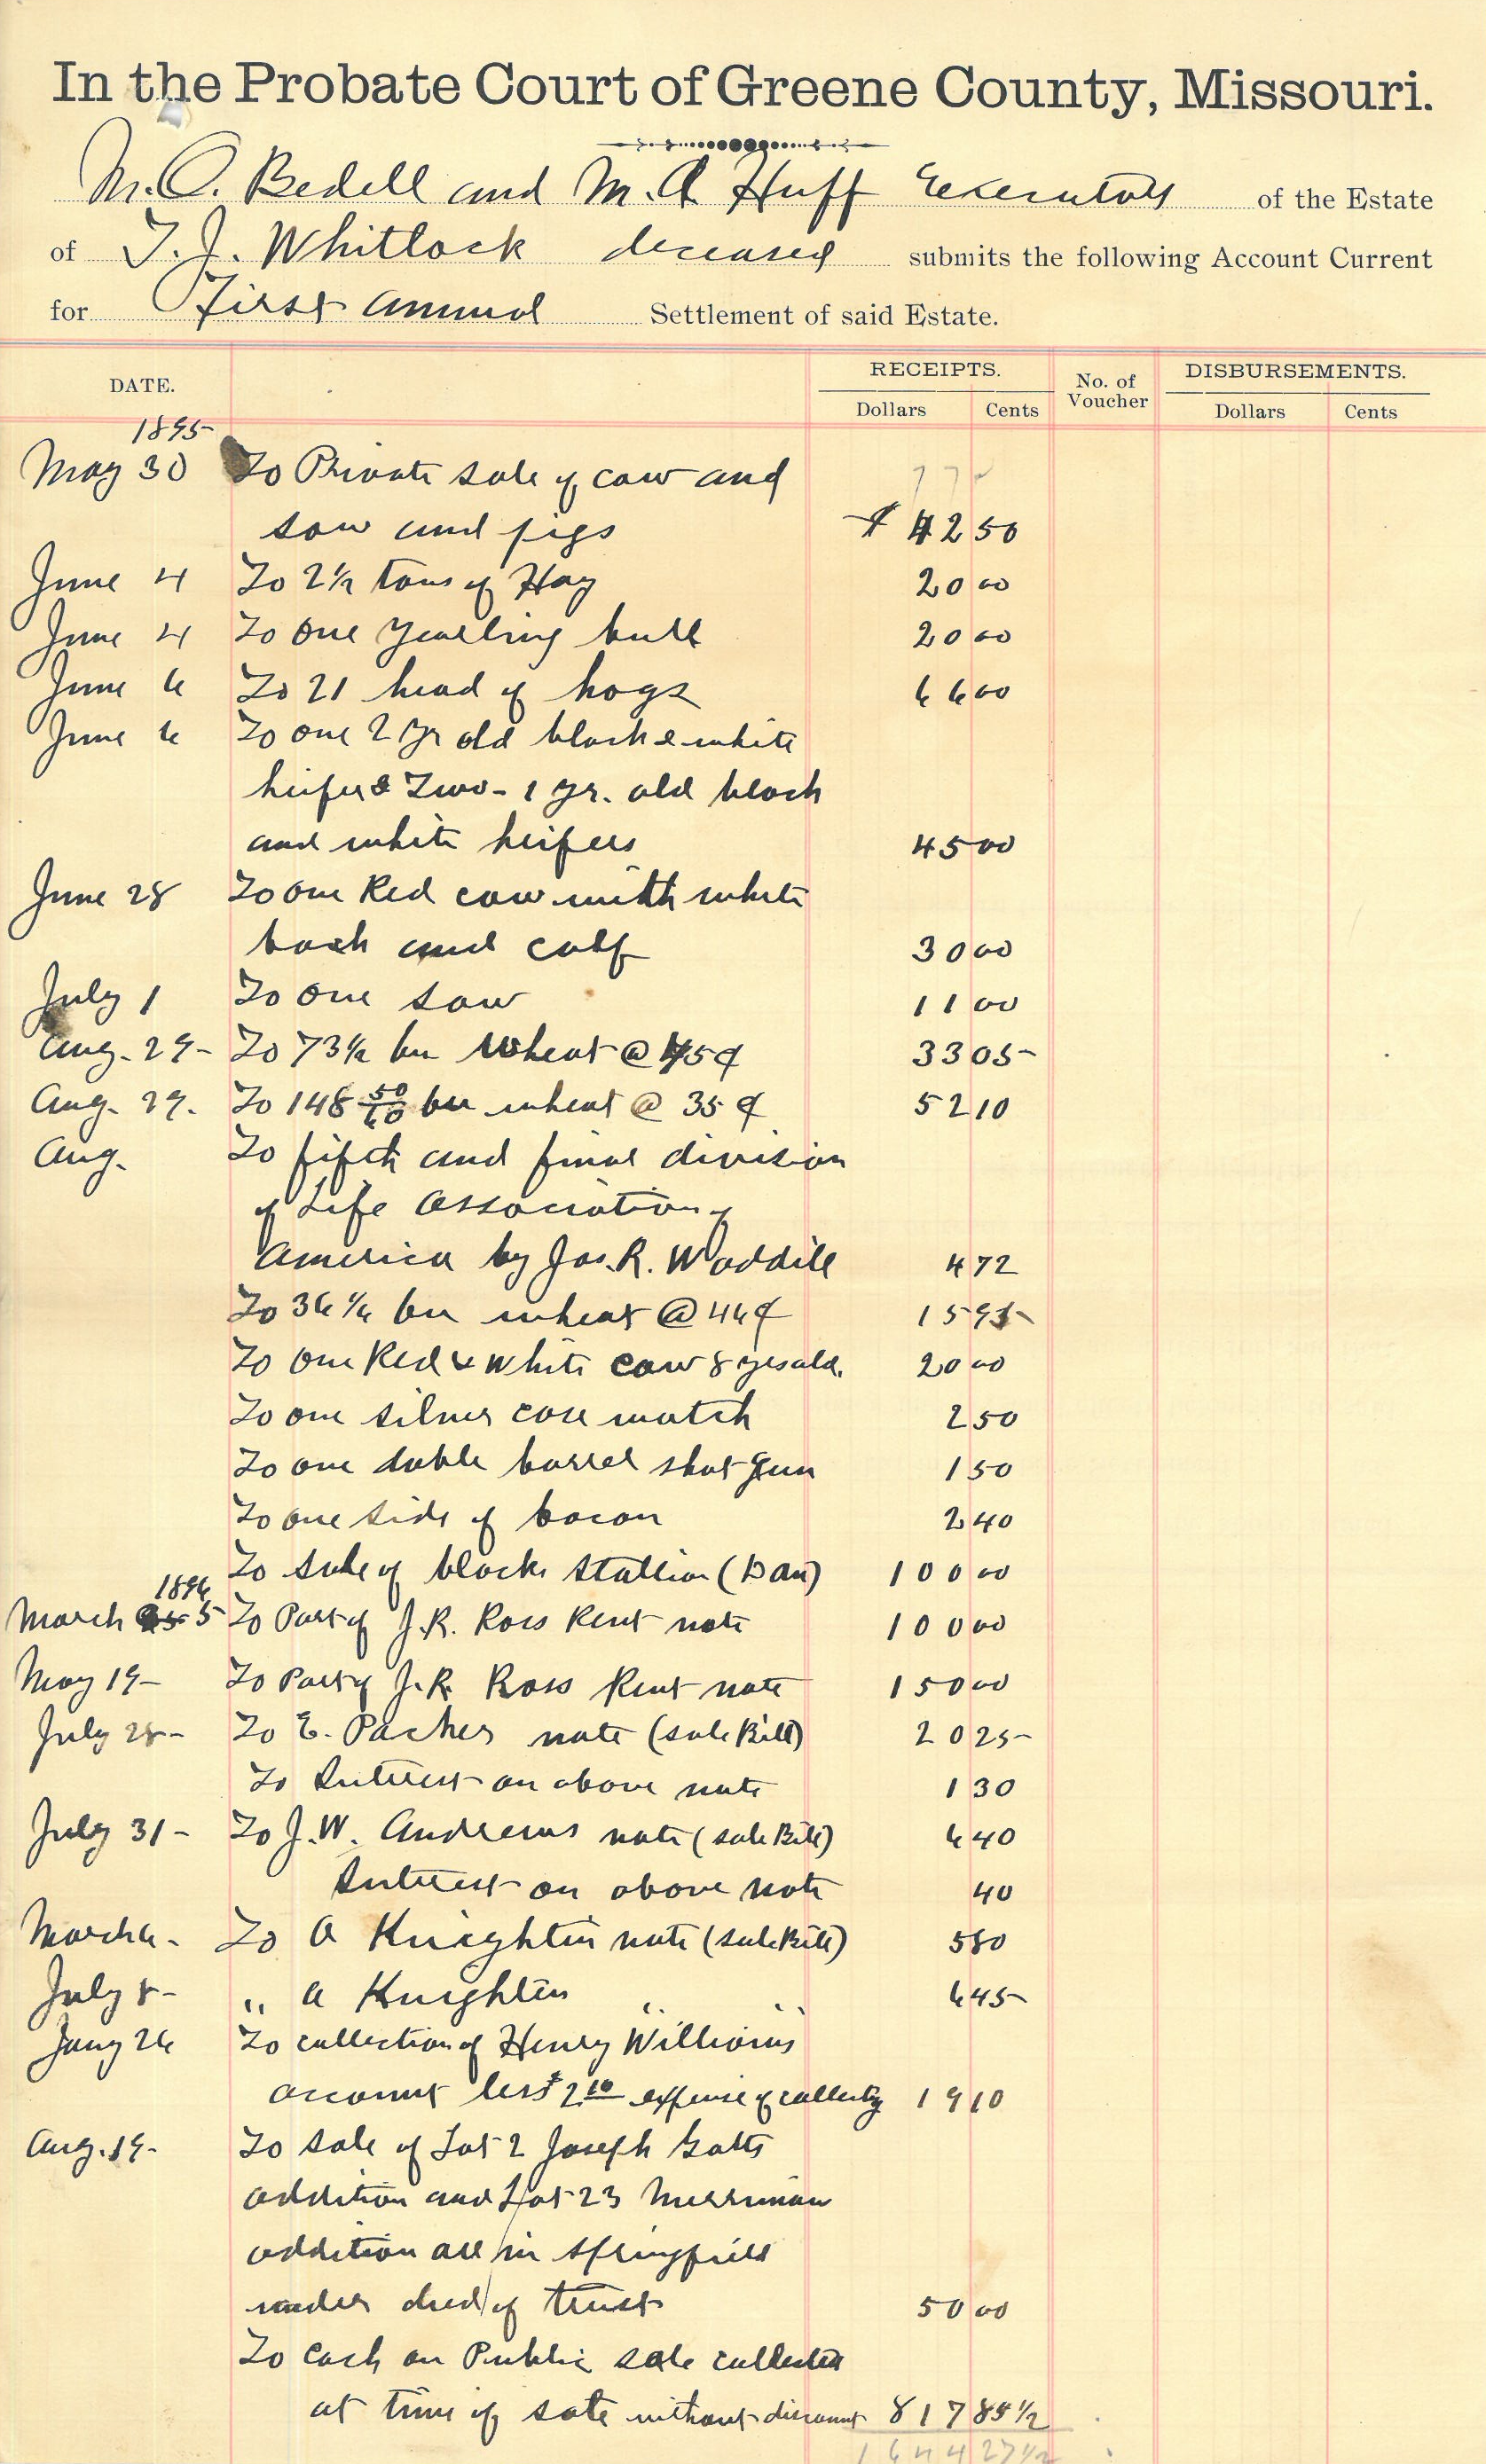 In the Probate Court of Greene County, Missouri.
M. O. Bedell and M. A. Huff Executors of the Estate
of T. J. Whitlock deceased submits the following Account Current
for First annual Settlement of said Estate.
DATE. RECEIPTS. No. of Voucher DISBURSEMENTS.
Dollars Cents Dollars Cents
1895
May 30 To Private sale of cow and
sow and pigs $ 42 50
June 4 To 2 1/2 tons of Hay 20 00
June 4 To one yearling bull 20 00
June 6 To 21 head of hogs 66 00
June 6 To one 2 yr old black & white
heifer & Two - 1 yr. old black
and white heifers 45 00
June 28 To one Red cow with white
back and calf 30 00
July 1 To one sow 11 00
Aug. 29 - To 73 1/2 bu wheat @ 45¢ 33 05
Aug. 29. To 148 50/60 bu wheat @ 35¢ 52 10
Aug. To fifth and final division
of Life Association of
America by Jas. R. Waddill 4 72
To 36 1/6 bu wheat @ 44¢ 15 95
To one Red & White cow 8 yrs old. 20 00
To one silver case watch 2 50
To one duble barrel shot gun 1 50
To one side of bacon 2 40
To sale of black stallion (Dan) 100 00
1896
March 5 To Part of J. R. Ross Rent note 100 00
May 19 - To Part of J. R. Ross Rent note 150 00
July 28 - To E. Packer note (sale Bill) 20 25
To Interest on above note 1 30
July 31 - To J. W. Andrews note (sale Bill) 6 40
Interest on above note 40
March 6 - To A Knightin note (sale Bill) 5 80
July 8 - " A Knightin " " 6 45
Jany 26 To collection of Henry Williams
account less $2 10 expense of collecting 19 10
Aug. 19 - To sale of Lot 2 Joseph Gotts
addition and Lot 23 Merriman
addition all in Springfield
under deed of trust 50 00
To Cash on Public sale collected
at time of sale without discount 817 85 1/2
1644 27 1/2